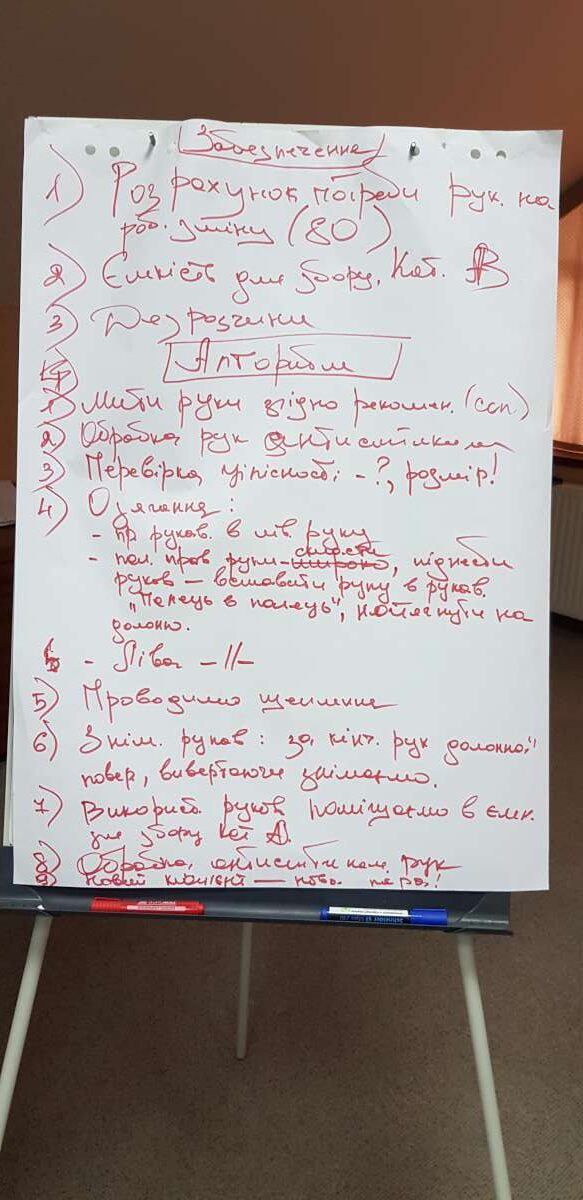 Забезпечення
1) Розрахунок потреби рук. на
роб. зміну (80)
2) Ємкість для збору, Кат. В
3) Дезрозчини
Алгоритм
1) Мити руки згідно рекомен. (соп)
2) Обробка рук антисептиком
3) Перевірка цілісності - ?, розмір!
4) Одягання:
- пр рукав. в лів. руку
- пол. прав руки - широко, піднести
рукав - вставити руку в рукав.
"Палець в палець", натягнути на
долоню.
- Ліва -//-
5) Проводимо щеплення
6) Знім. рукав: за кінч. рук долонної
повер, вивертаючи знімаємо.
7) Використ. рукав поміщаємо в ємк.
для збору Кат А.
8) Обробка антисептиком рук
9) Новий клієнт - нова пара!
Schneider